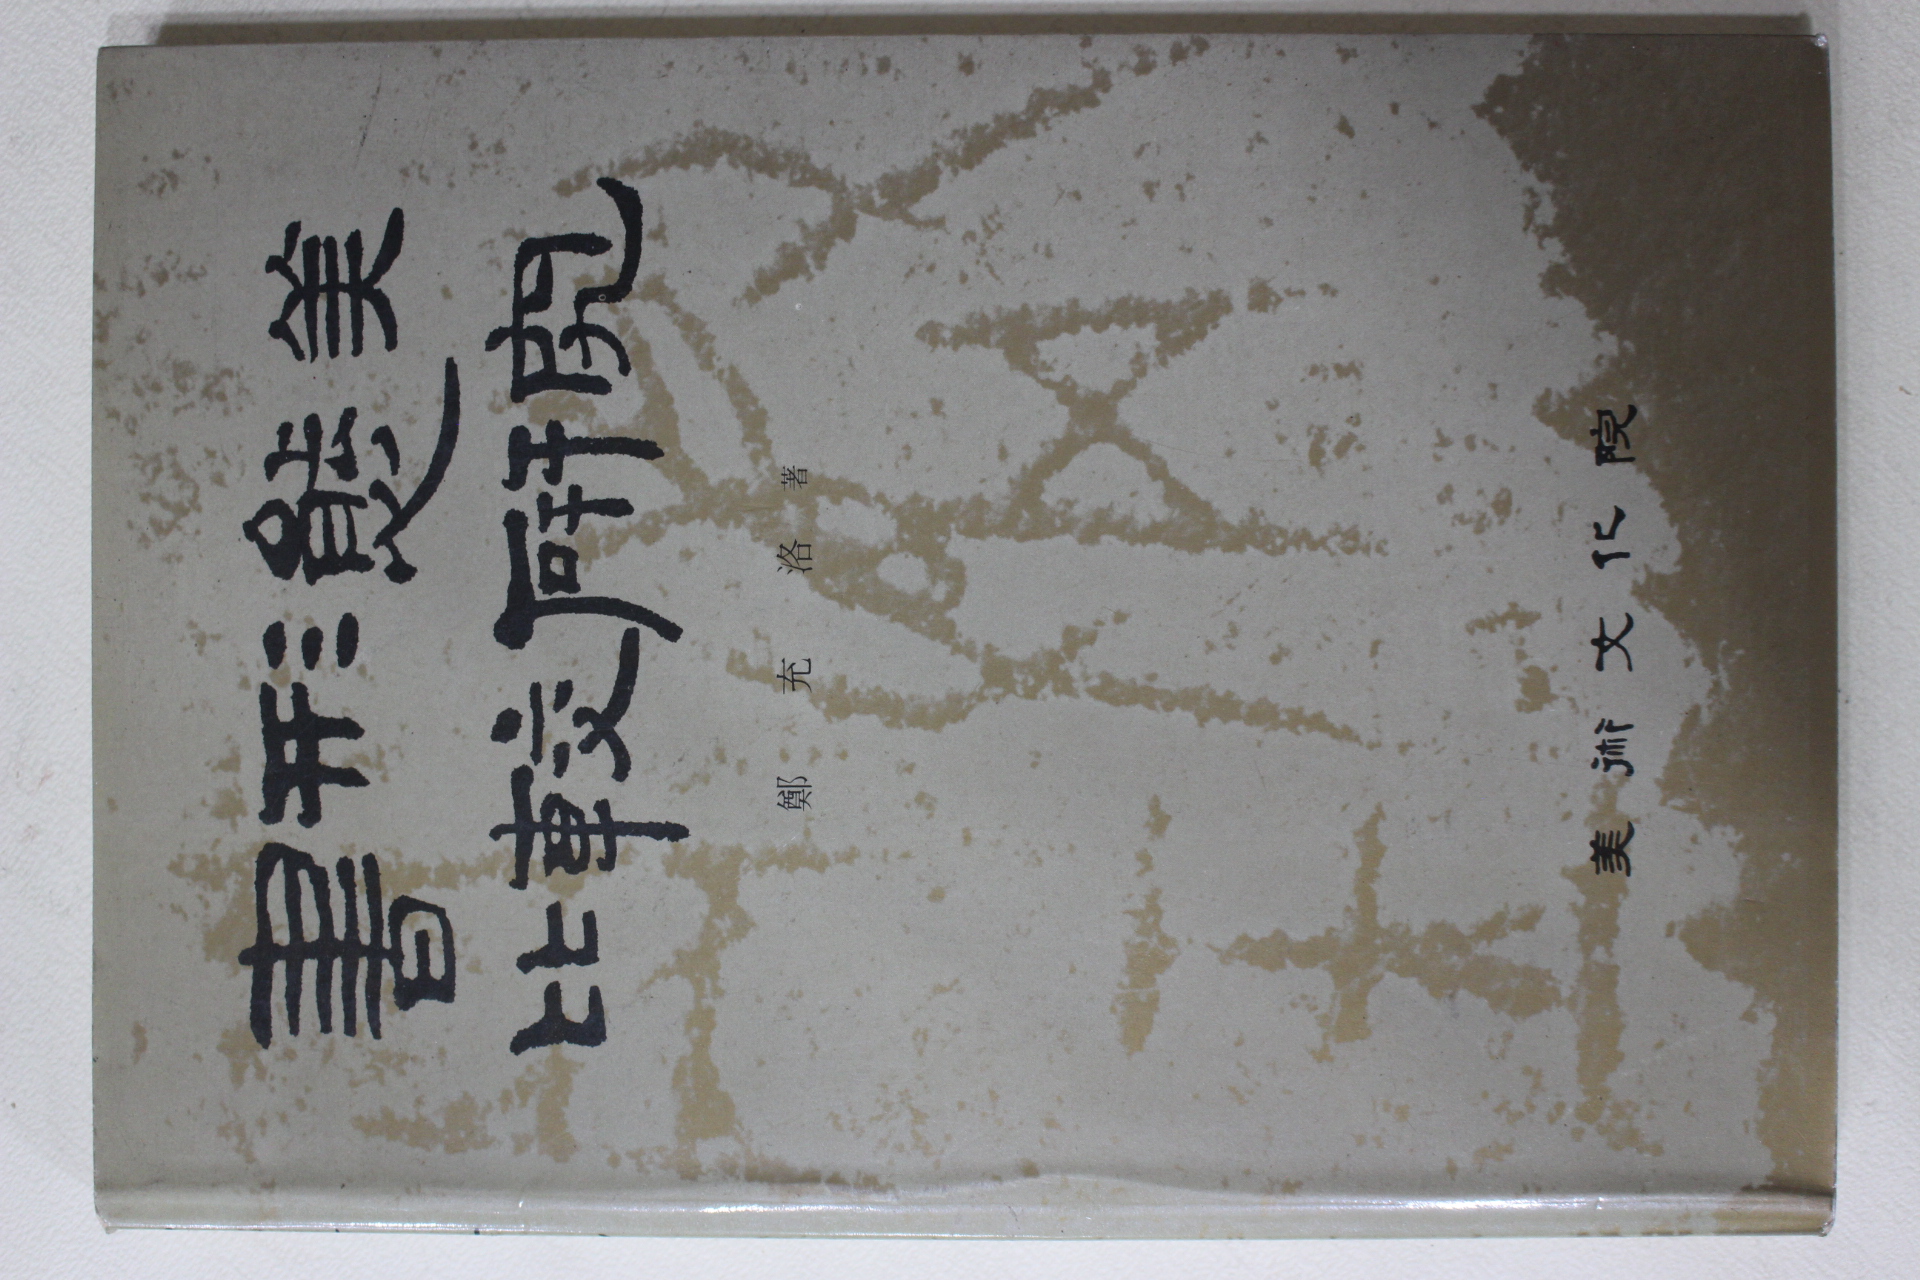 書形態美
比較研究
鄭充洛 著
美術文化院